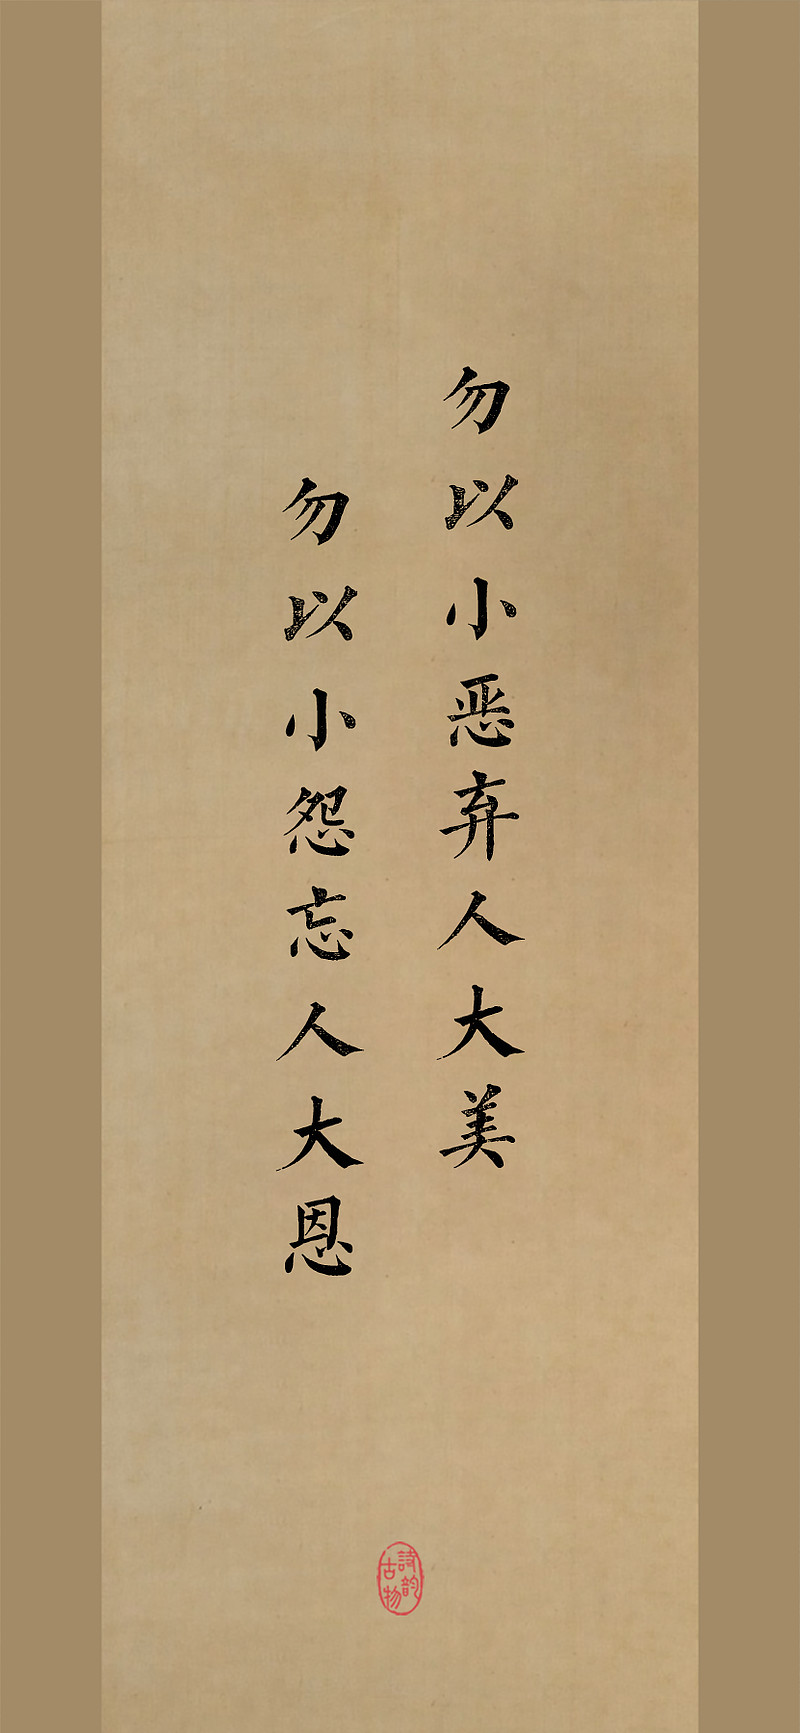 勿以小恶弃人大美
勿以小怨忘人大恩
詩韵
古物